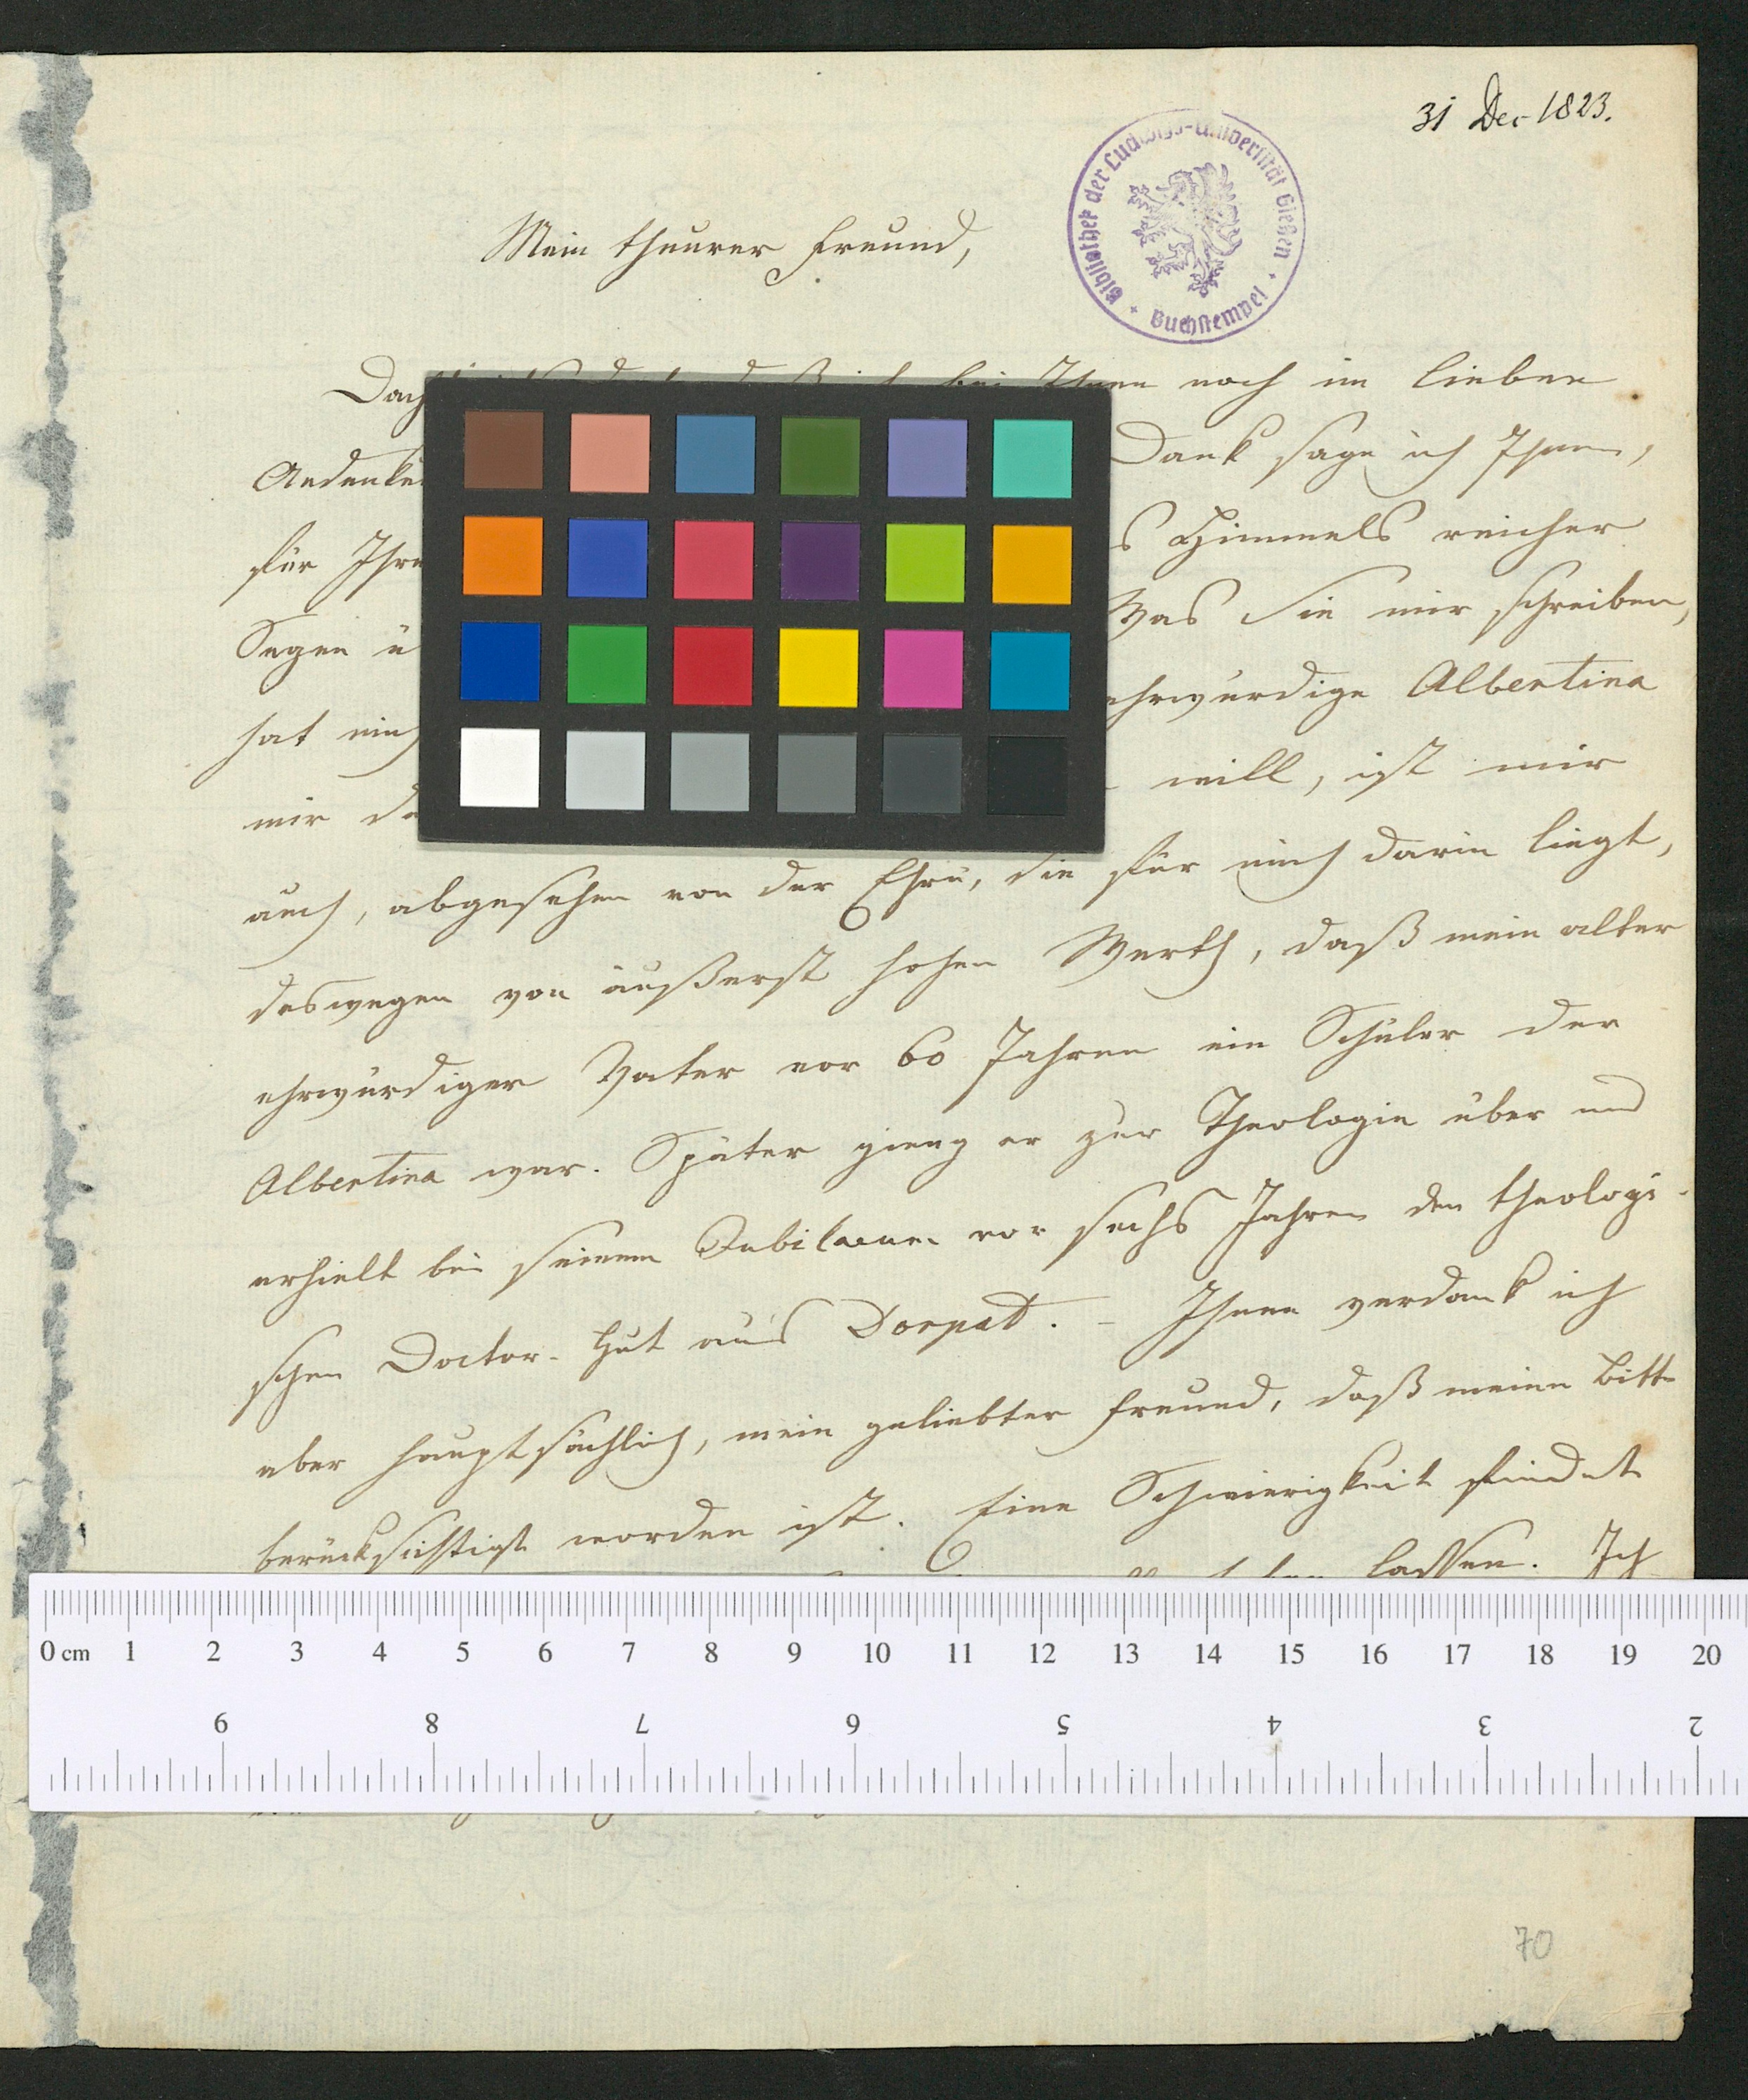 31 Dec 1823.
Bibliothek der Ludwigs-Universität Gießen
Buchstempel
Mein theurer Freund,
bei Ihnen noch im lieben
Dank sage ich Ihnen,
für Himmels reicher
Segen Was Sie mir schreiben,
hat ehrwürdige Albertina
mir will, ist mir
auch, abgesehen von der Ehre, die für mich darin liegt,
deswegen von äußerst hohen Werth, daß mein alter
ehrwürdiger Vater vor 60 Jahren ein Schüler der
Albertina war. Später gieng er zur Theologie über und
erhielt bei seinem Jubilaeum vor sechs Jahren den theologi-
schen Doctor-Hut aus Dorpat. - Ihnen verdank ich
aber hauptsächlich, mein geliebter Freund, daß meine Bitte
berücksichtigt worden ist. Eine Schwierigkeit findet
lassen. Ich
0 cm 1 2 3 4 5 6 7 8 9 10 11 12 13 14 15 16 17 18 19 20
9 8 7 6 5 4 3 2
70